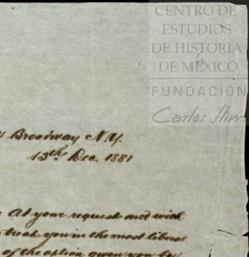 CENTRO DE
ESTUDIOS
DE HISTORIA
DE MÉXICO
FUNDACIÓN
Carlos Slim
Broadway N.Y.
13th Dec. 1881
At your request and with
treat you in the most liberal
of the option given you by